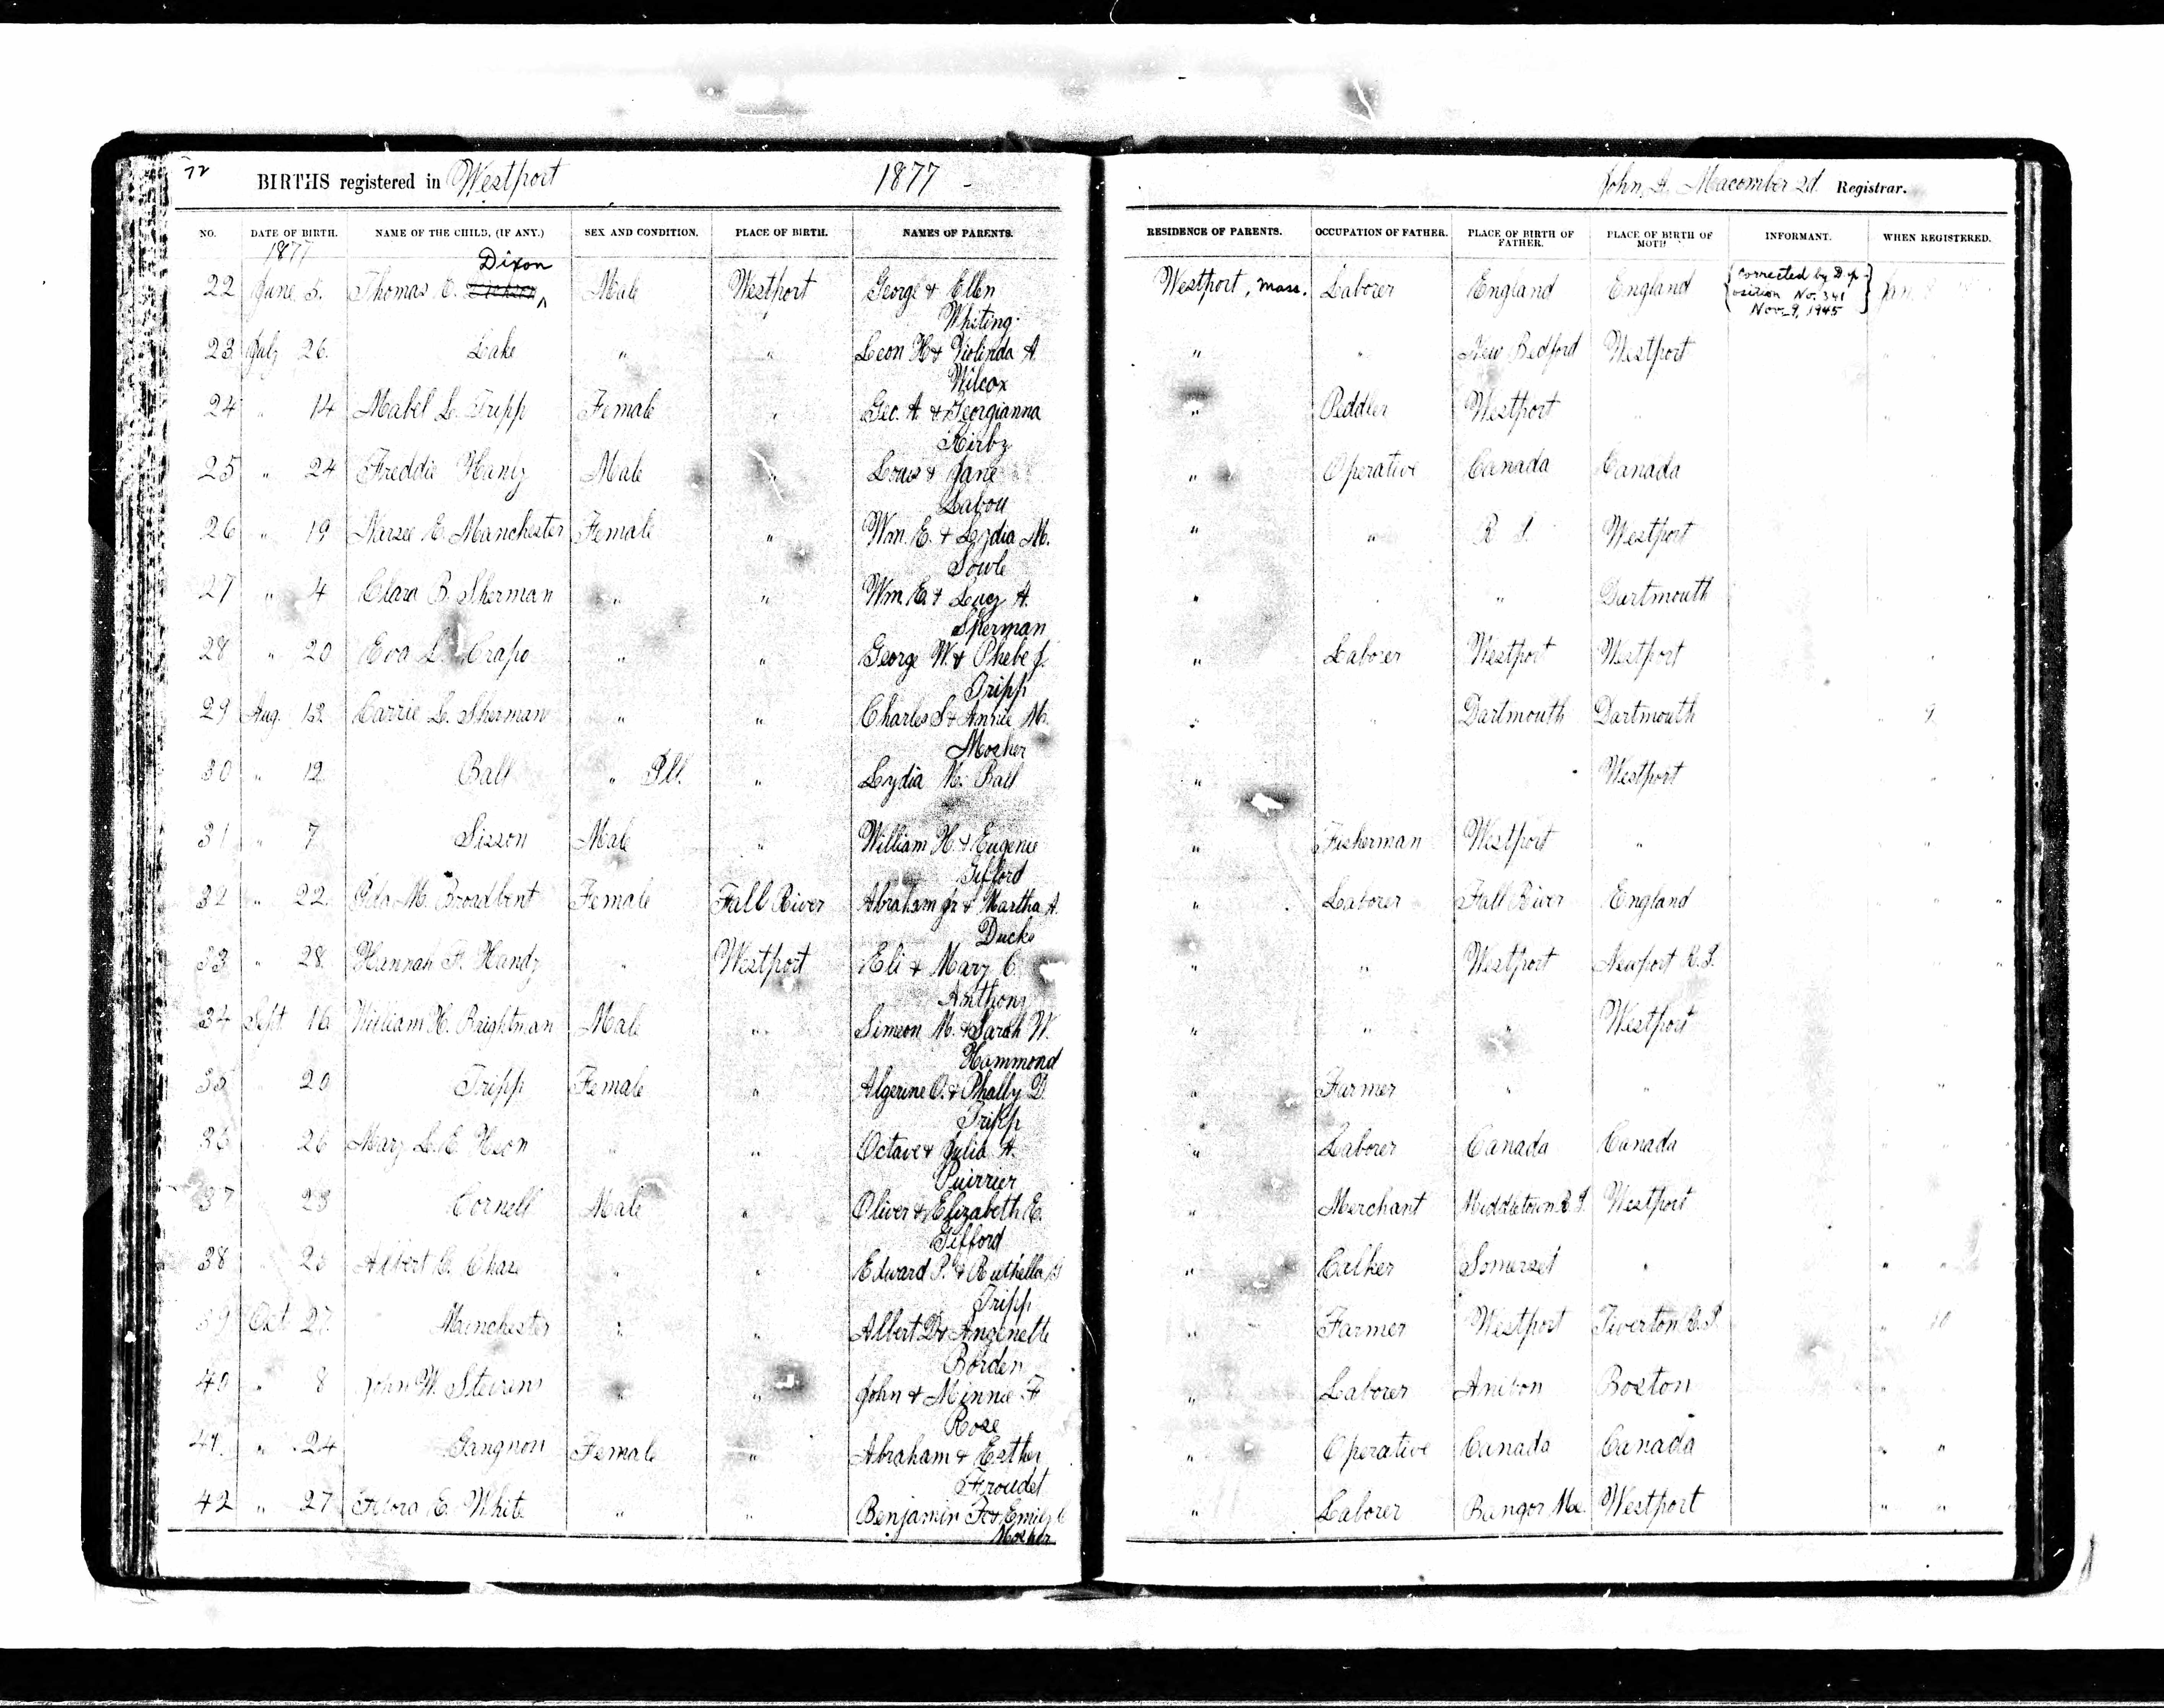 72 BIRTHS registered in Westport 1877 - John A. Macomber 2d. Registrar.
NO. DATE OF BIRTH. NAME OF THE CHILD, (IF ANY.) SEX AND CONDITION. PLACE OF BIRTH. NAMES OF PARENTS. RESIDENCE OF PARENTS. OCCUPATION OF FATHER. PLACE OF BIRTH OF FATHER. PLACE OF BIRTH OF MOTH INFORMANT. WHEN REGISTERED.
1877
Dixon
22 June 5. Thomas E. Male Westport George & Ellen Westport, Mass. Laborer England England Corrected by Dep- Jan. 8
osition No. 341
Nov. 9, 1945
Whiting
23 July 26. Lake " " Leon H & Violinda A. " " New Bedford Westport
Wilcox
24 " 14 Mabel L. Tripp Female " Geo. A. & Georgianna " Peddler Westport "
Kirby
25 " 24 Freddie Male " Louis & Jane " Operative Canada Canada
Labou
26 " 19 E. Manchester Female " Wm. E. & Lydia M. " " R. I. Westport
Sowle
27 " 4 Clara B. Sherman " " Wm. E. & Lucy A. " " " Dartmouth
Sherman
28 " 20 Eva L. Crapo " " George W. & Phebe J. " Laborer Westport Westport
Tripp
29 Aug. 13. Carrie L. Sherman " " Charles S & Annie M. " " Dartmouth Dartmouth " 9
Mosher
30 " 12 Ball " Ill. " Lydia M. Ball " Westport "
31 " 7 Sisson Male " William H. & Eugenie " Fisherman Westport " "
Gifford
32 " 22. M. Broadbent Female Fall River Abraham Jr & Martha A. " Laborer Fall River England "
Ducks
33 " 28. Hannah F. Handy " Westport Eli & Mary C. " " Westport Newport R.I. "
Anthony
34 Sept 16 William H. Brightman Male " Simeon M. & Sarah W. " " " Westport
Hammond
35 " 20 Tripp Female " Algerine O. & Phally D. " Farmer " " "
Tripp
36 26 Mary L. E. " " Octave & Julia A. " Laborer Canada Canada "
Puirrier
37 23 Cornell Male " Oliver & Elizabeth E. " Merchant Middletown R.I. Westport "
Gifford
38 " Albert C. Chase " " Edward P. & Ruthella " Calker Somerset " " "
Tripp
39 Oct 27. Manchester " " Albert D & Angenette " Farmer Westport Tiverton R.I. " 10
Borden
40 " 8 John W. Stevens " " John & Minnie F " Laborer Boston "
Rose
41 " 24 Gangnon Female " Abraham & Esther " Operative Canada Canada " "
Froudet
42 " 27 Flora E. White " " Benjamin F & Emily C " Laborer Bangor Me. Westport " "
Mosher